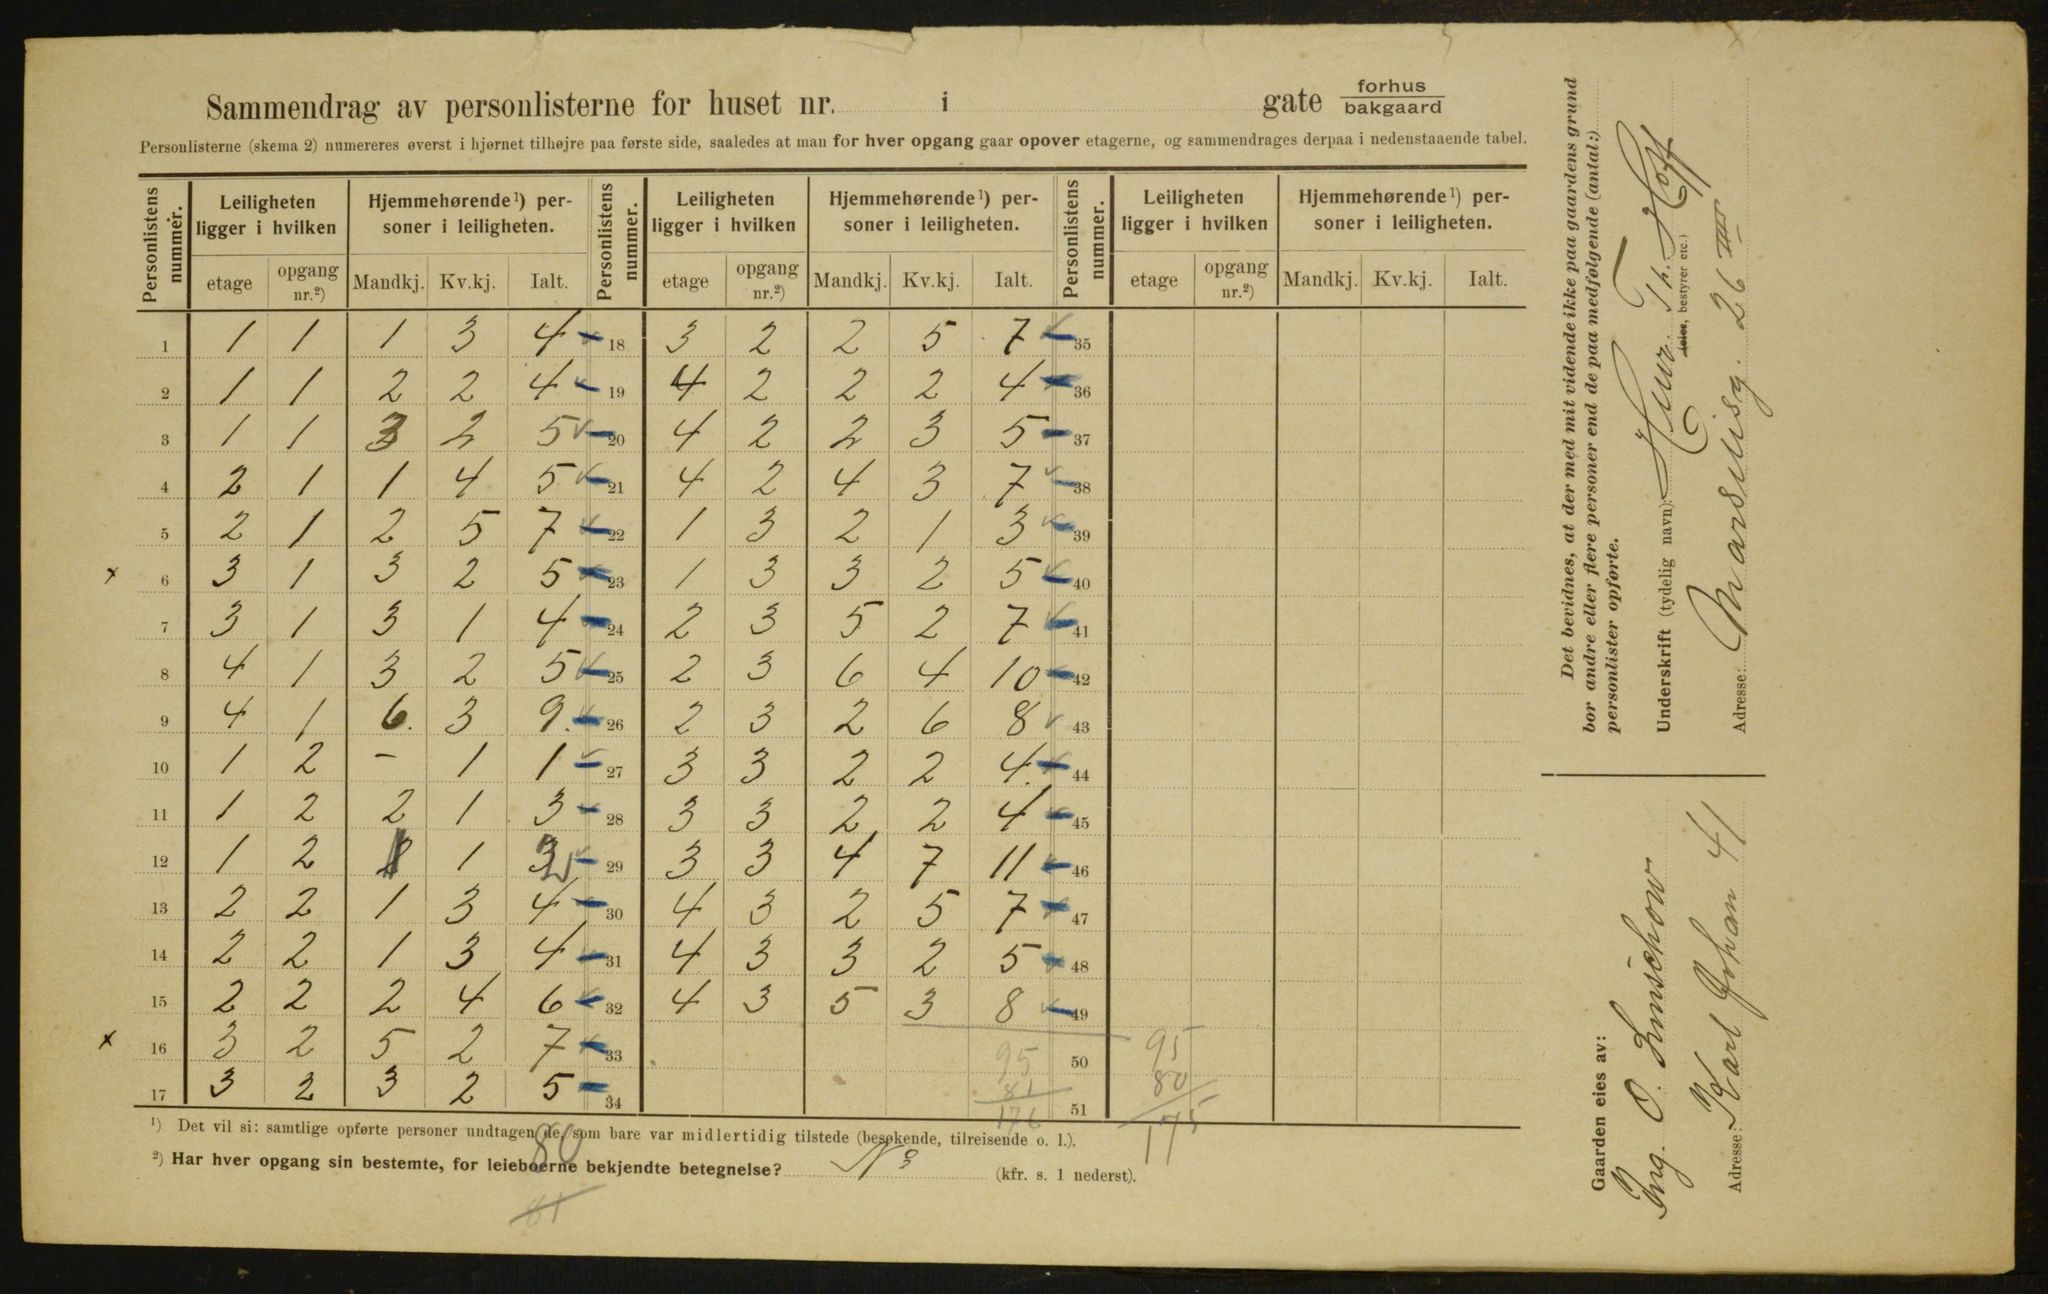 Sammendrag av personlisterne for huset nr. i gate forhus bakgaard
Personlisterne (skema 2) numereres øverst i hjørnet tilhøjre paa første side, saaledes at man for hver opgang gaar opover etagerne, og sammendrages derpaa i nedenstaaende tabel.
Personlistens nummer. Leiligheten ligger i hvilken Hjemmehørende¹) personer i leiligheten. Personlistens nummer. Leiligheten ligger i hvilken Hjemmehørende¹) personer i leiligheten. Personlistens nummer. Leiligheten ligger i hvilken Hjemmehørende¹) personer i leiligheten.
etage opgang nr.²) Mandkj. Kv.kj. Ialt. etage opgang nr.²) Mandkj. Kv.kj. Ialt. etage opgang nr.²) Mandkj. Kv.kj. Ialt.
1 1 1 1 3 4 18 3 2 2 5 7 35
2 1 1 2 2 4 19 4 2 2 2 4 36
3 1 1 3 2 5 20 4 2 2 3 5 37
4 2 1 1 4 5 21 4 2 4 3 7 38
5 2 1 2 5 7 22 1 3 2 1 3 39
x 6 3 1 3 2 5 23 1 3 3 2 5 40
7 3 1 3 1 4 24 2 3 5 2 7 41
8 4 1 3 2 5 25 2 3 6 4 10 42
9 4 1 6. 3 9. 26 2 3 2 6 8 43
10 1 2 - 1 1 27 3 3 2 2 4. 44
11 1 2 2 1 3 28 3 3 2 2 4 45
12 1 2 1 1 2 29 3 3 4 7 11 46
13 2 2 1 3 4 30 4 3 2 5 7 47
14 2 2 1 3 4 31 4 3 3 2 5 48
15 2 2 2 4 6 32 4 3 5 3 8 49
x 16 3 2 5 2 7 33 95 50 95
17 3 2 3 2 5 34 81 51 80
176 175
¹) Det vil si: samtlige opførte personer undtagen de, som bare var midlertidig tilstede (besøkende, tilreisende o. l.).
80
²) Har hver opgang sin bestemte, for leieboerne bekjendte betegnelse? (kfr. s. 1 nederst).
81
Det bevidnes, at der med mit vidende ikke paa gaardens grund
bor andre eller flere personer end de paa medfølgende (antal:)
personlister opførte.
Underskrift (tydelig navn): Th. Hoff
(eier, bestyrer etc.)
Adresse: Marselisg. 26 IIII
Gaarden eies av:
Ing. O.
Adresse: Karl Johan 41